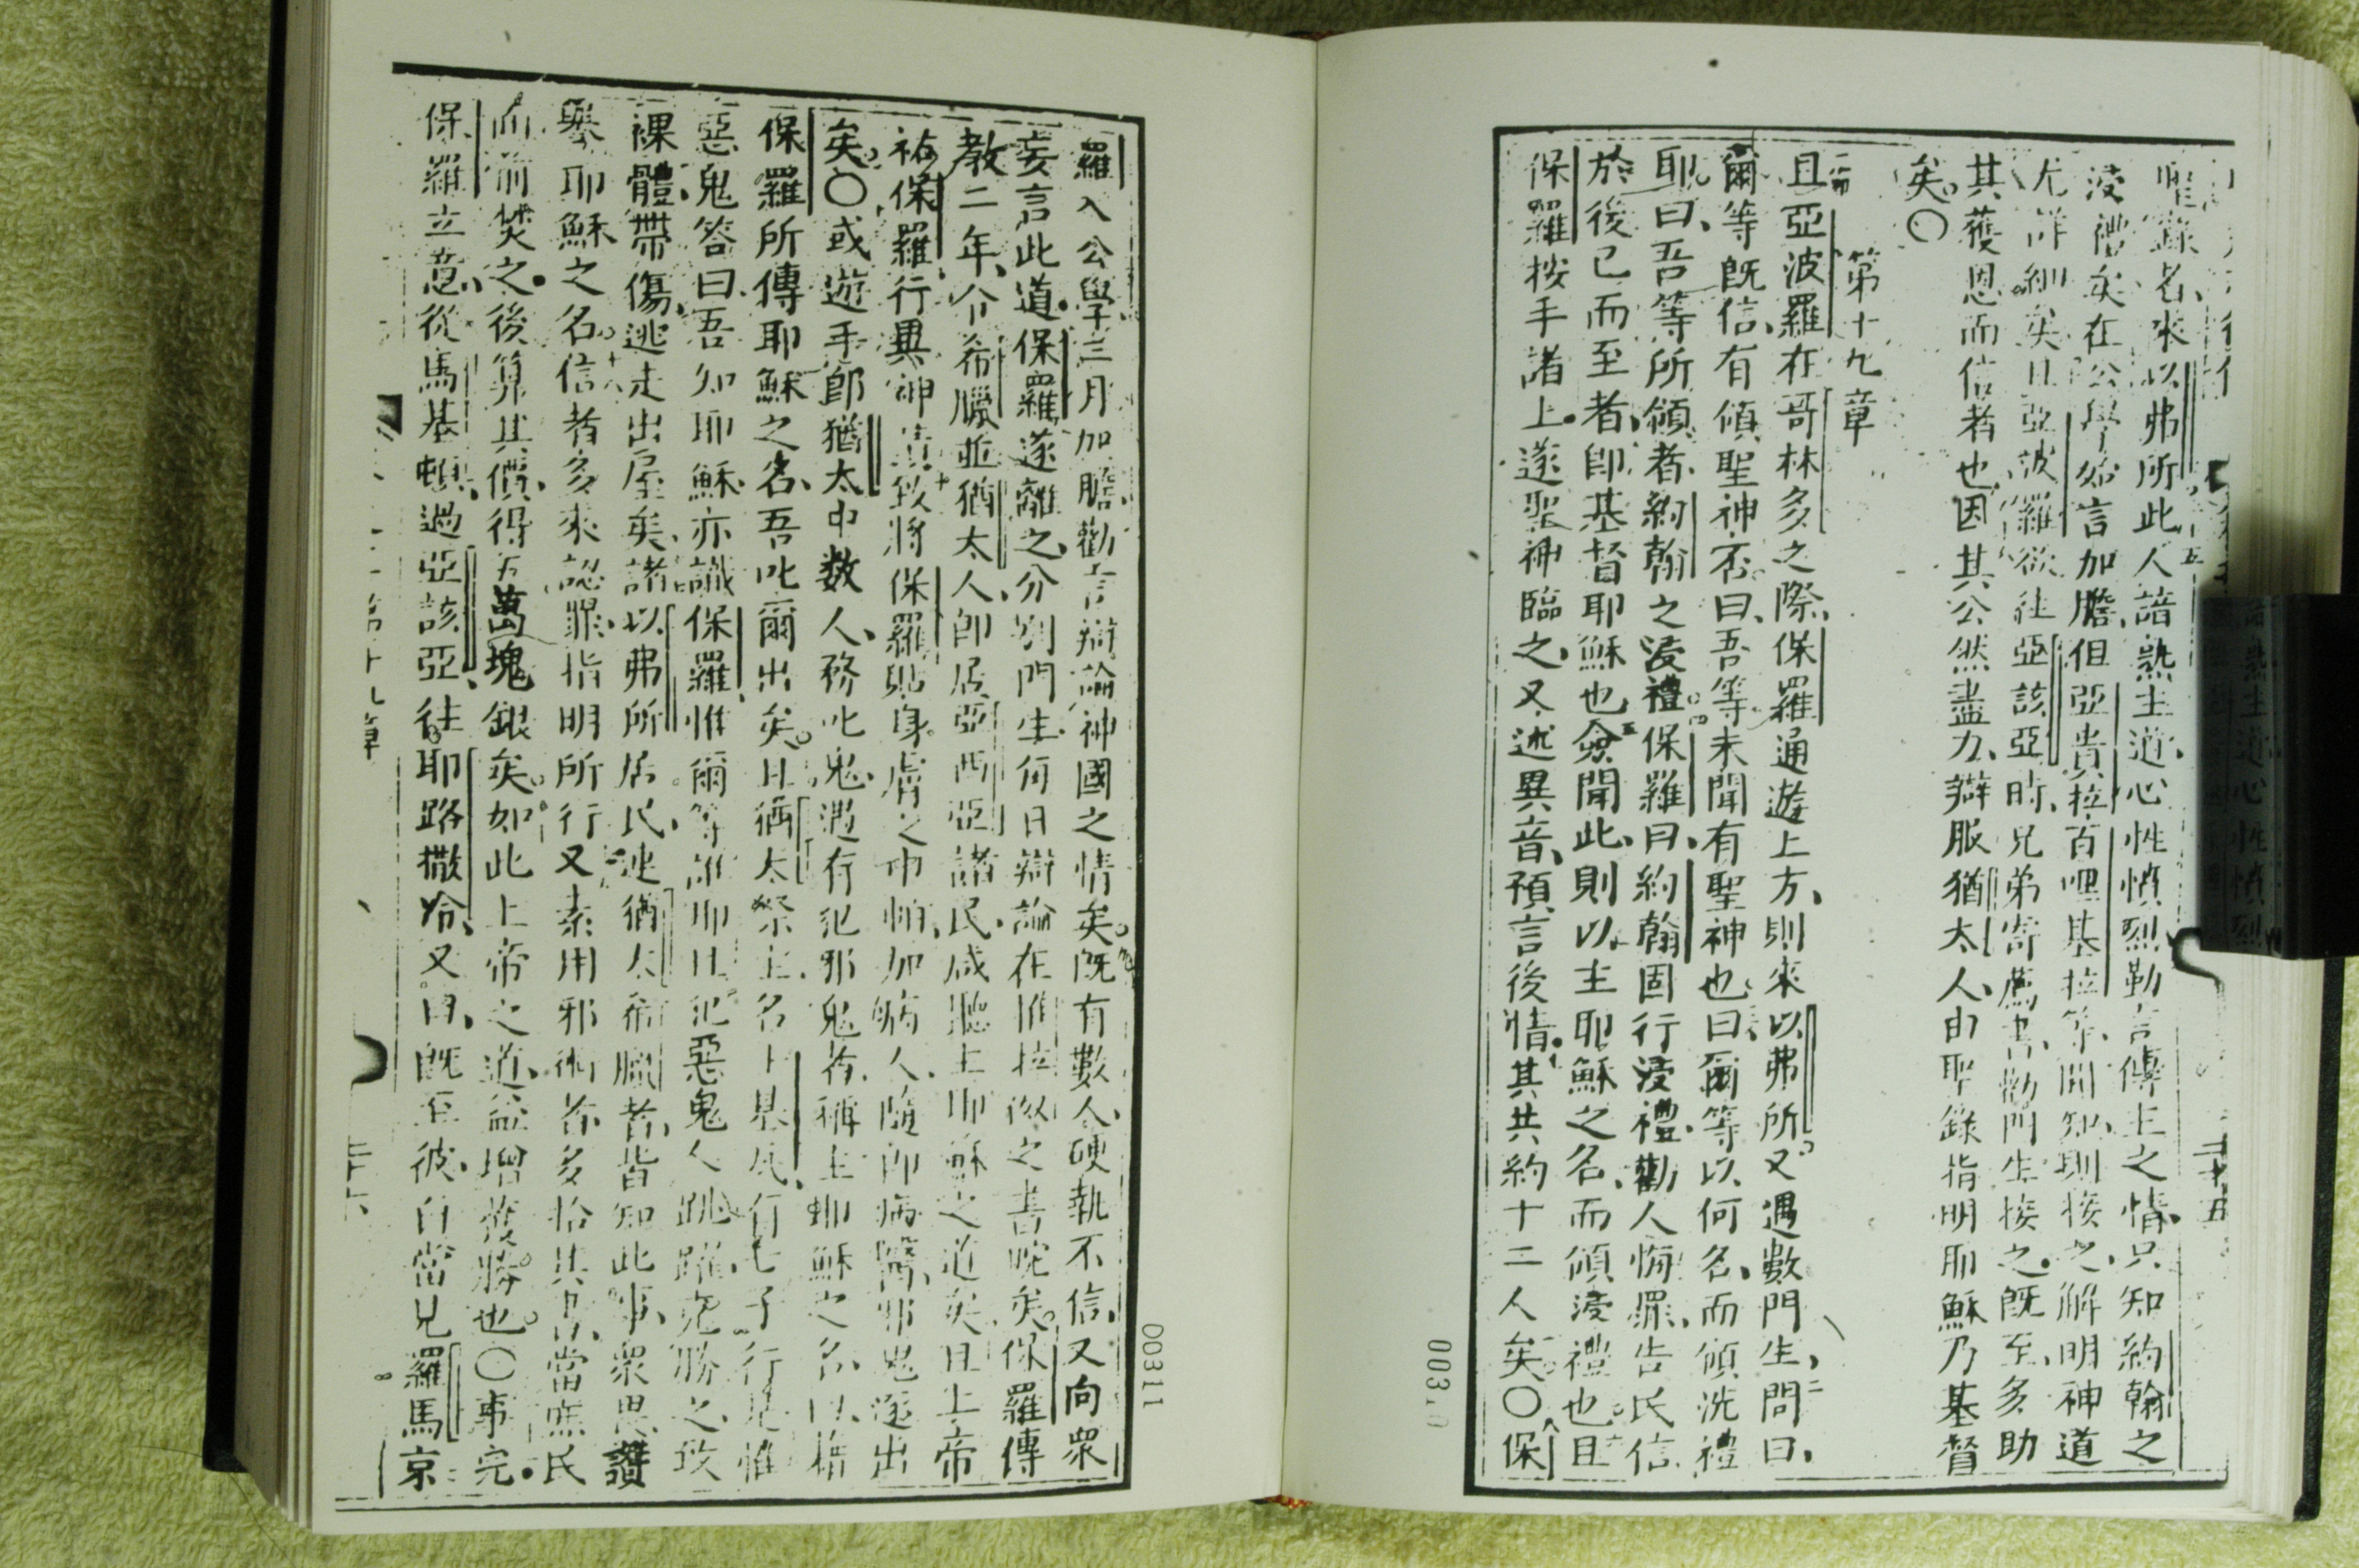 惟錄名來以弗所此人諳熟主道心性憤烈勤言傳主之情只知約翰之
浸禮矣在公學始言加膽但亞貴拉百哩基拉等聞知則接之解明神道
尤詳細矣且亞波羅欲往亞該亞時兄弟寄薦書勸門生接之既至多助
其獲恩而信者也因其公然盡力辯服猶太人由聖錄指明耶穌乃基督
矣○
第十九章
且亞波羅在哥林多之際保羅通遊上方則來以弗所又遇數門生問曰
爾等既信有領聖神否曰吾等未聞有聖神也曰爾等以何名而領洗禮
耶曰吾等所領者約翰之浸禮保羅曰約翰固行浸禮勸人悔罪告民信
於後己而至者即基督耶穌也僉聞此則以主耶穌之名而領浸禮也且
保羅按手諸上遂聖神臨之又述異音預言後情其共約十二人矣○保
羅入公學三月加膽勸言辯論神國之情矣既有數人硬執不信又向眾
妄言此道保羅遂離之分別門生每日辯論在推拉之書院矣保羅傳
教二年介希臘並猶太人即居亞西亞諸民咸聽主耶穌之道矣且上帝
祐保羅行異神蹟致將保羅貼身膚之巾帕加病人隨即病醫邪鬼逐出
矣○或遊手即猶太中数人務叱鬼遇有犯邪鬼者稱主耶穌之名以
保羅所傳耶穌之名吾叱爾出矣且猶太祭主名士基瓦有七子行是惟
惡鬼答曰吾知耶穌亦識保羅惟爾等誰耶且犯惡鬼人跳躍克勝之致
裸體帶傷逃走出屋矣諸以弗所居民連猶太希臘者皆知此事眾畏讚
舉耶穌之名信者多來認罪指明所行又素用邪術者多拾其書當庶民
面前焚之後算其價得五萬塊銀矣如此上帝之道益增獲勝也○事完
保羅立意從馬基頓過亞該亞往耶路撒冷又曰既至彼自當見羅馬京
第十九章
00311